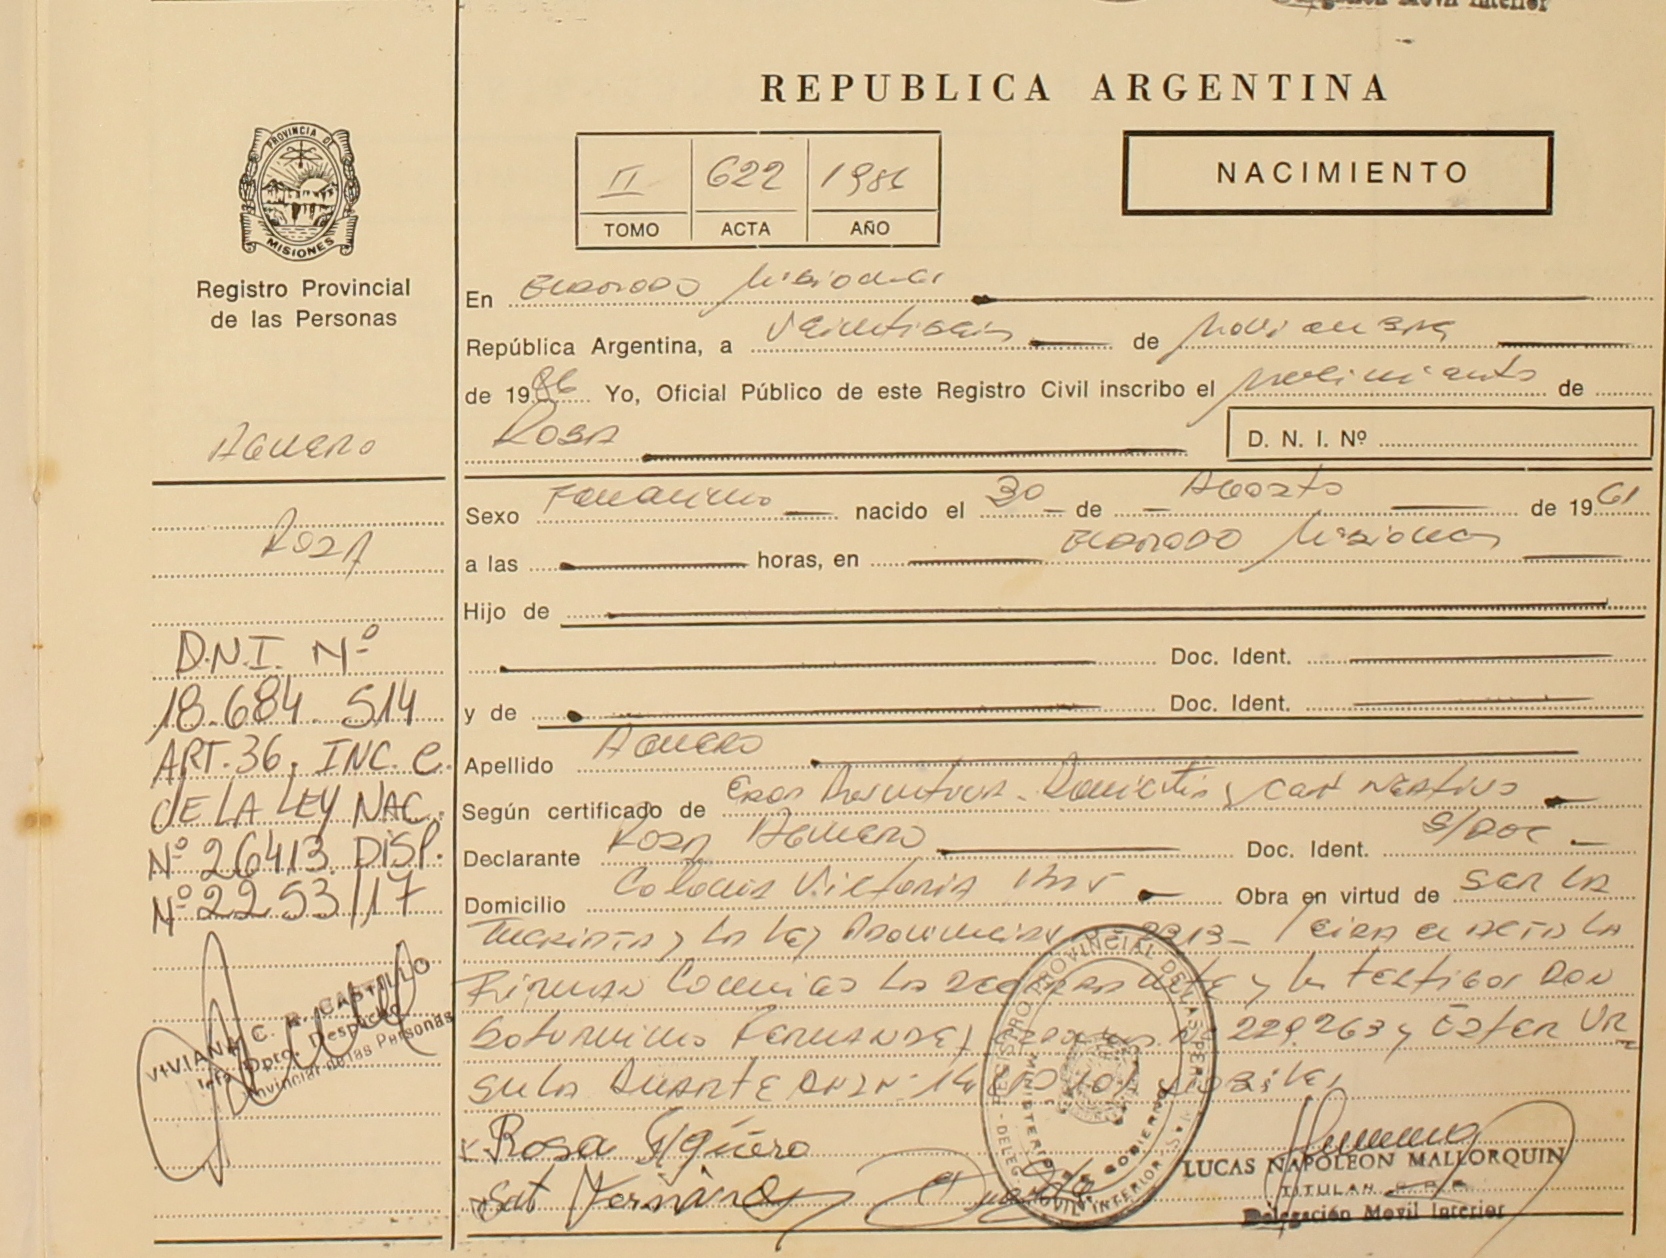 Delegación Movil Interior
REPUBLICA ARGENTINA
PROVINCIA DE
MISIONES
Registro Provincial
de las Personas
II 622 1986
TOMO ACTA AÑO
NACIMIENTO
En Eldorado Misiones
República Argentina, a Veintiseis de Noviembre
de 1986 Yo, Oficial Público de este Registro Civil inscribo el nacimiento de
Rosa
D. N. I. Nº
Aguero
Rosa
Sexo Femenino nacido el 30 de Agosto de 1961
a las horas, en Eldorado Misiones
Hijo de
Doc. Ident.
y de Doc. Ident.
Apellido Aguero
Según certificado de Edad y Cert Negativo
Declarante Rosa Aguero Doc. Ident. S/Doc
Domicilio Colonia Victoria Obra en virtud de ser la
y la Ley Provincial 2213
Firman la y los testigos Don
Fernandez 229.263 y Ester Ur
sula Duarte
Rosa Agüero
Sat Fernández
D.N.I. Nº
18.684.514
ART.36, INC. C.
de LA LEY NAC.
Nº 26413 DISP.
Nº 2253/17
VIVIANA C. R. CASTILLO
Dpto. Despacho
Provincial de las Personas
REGISTRO PROVINCIAL DE LAS PERS
MINISTERIO DE GOBIERNO
DELEG MOVIL INTERIOR
LUCAS NAPOLEON MALLORQUIN
TITULAR
Delegación Movil Interior